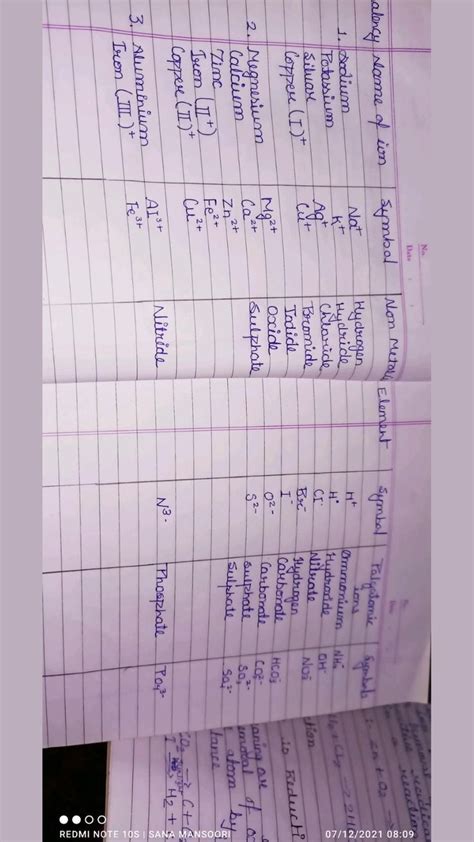 No.
Date
Valency Name of ion Symbol Non Metallic Element Symbol Polyatomic ions Symbols
1. Sodium Na+ Hydrogen H+ Ammonium NH4+
Potassium K+ Hydride H- Hydroxide OH-
Siluar Ag+ Chloride Cl- Nitrate NO3-
Copper (I)+ Cu+ Bromide Br- Hydrogen
Iodide I- Carbonate HCO3-
2. Megnesium Mg2+ Oxide O2- Carbonate CO32-
Calcium Ca2+ Sulphate S2- Sulphate SO42-
Zinc Zn2+ Sulphate SO42-
Iron (II+) Fe2+
Copper (II)+ Cu2+
3. Aluminium Al3+ Nitride N3- Phosphate PO43-
Iron (III)+ Fe3+
REDMI NOTE 10S | SANA MANSOORI
07/12/2021 08:09